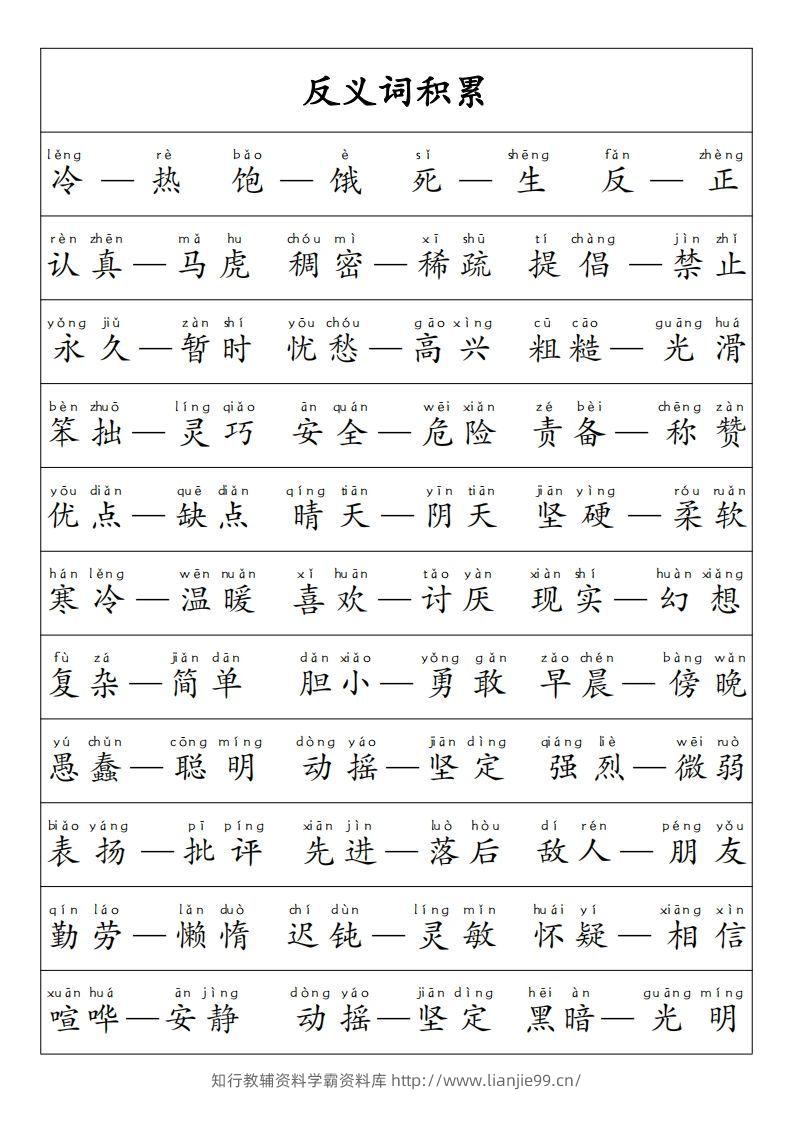 反义词积累
lěng rè bǎo è sǐ shēng fǎn zhèng
冷 — 热 饱 — 饿 死 — 生 反 — 正
rèn zhēn mǎ hu chóu mì xī shū tí chàng jìn zhǐ
认真 — 马虎 稠密 — 稀疏 提倡 — 禁止
yǒng jiǔ zàn shí yōu chóu gāo xìng cū cāo guāng huá
永久 — 暂时 忧愁 — 高兴 粗糙 — 光滑
bèn zhuō líng qiǎo ān quán wēi xiǎn zé bèi chēng zàn
笨拙 — 灵巧 安全 — 危险 责备 — 称赞
yōu diǎn quē diǎn qíng tiān yīn tiān jiān yìng róu ruǎn
优点 — 缺点 晴天 — 阴天 坚硬 — 柔软
hán lěng wēn nuǎn xǐ huān tǎo yàn xiàn shí huàn xiǎng
寒冷 — 温暖 喜欢 — 讨厌 现实 — 幻想
fù zá jiǎn dān dǎn xiǎo yǒng gǎn zǎo chén bàng wǎn
复杂 — 简单 胆小 — 勇敢 早晨 — 傍晚
yú chǔn cōng míng dòng yáo jiān dìng qiáng liè wēi ruò
愚蠢 — 聪明 动摇 — 坚定 强烈 — 微弱
biǎo yáng pī píng xiān jìn luò hòu dí rén péng yǒu
表扬 — 批评 先进 — 落后 敌人 — 朋友
qín láo lǎn duò chí dùn líng mǐn huái yí xiāng xìn
勤劳 — 懒惰 迟钝 — 灵敏 怀疑 — 相信
xuān huá ān jìng dòng yáo jiān dìng hēi àn guāng míng
喧哗 — 安静 动摇 — 坚定 黑暗 — 光明
知行教辅资料学霸资料库 http://www.lianjie99.cn/